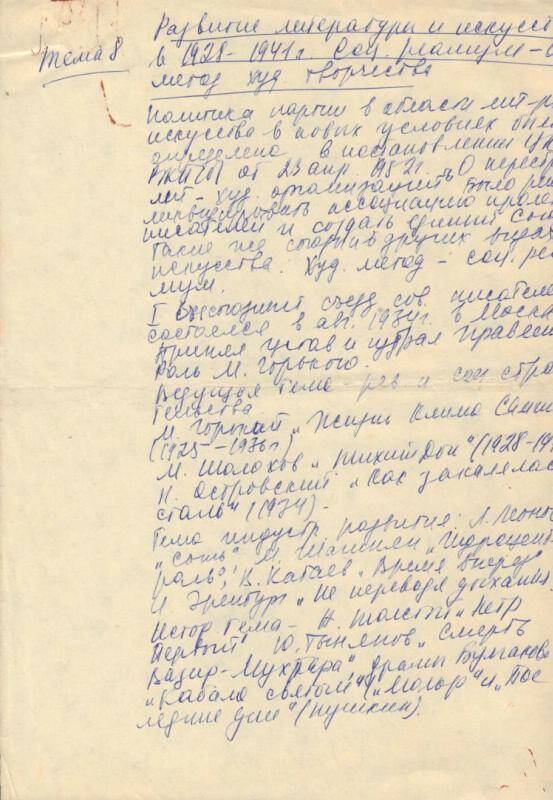 Тема 8
Развитие литературы и искусс
в 1928-1941 г. Соц. реализм - о
метод худ. творчества
Политика партии в области лит-р
искусства в новых условиях была
определена в постановлении ЦК
ВКП(б) от 23 апр. 1932 г. „О перестр
лит-худ. организаций". Было реш
ликвидировать ассоциацию пролет
писателей и создать единый Сою
Такие же союзы в других видах
искусства. Худ. метод - соц. реа
лизм.
I Всесоюзный съезд сов. писателе
состоялся в авг. 1934 г. в Моск
Принял устав и избрал правлен
Роль М. Горького.
Ведущая тема - рев. и соц. стро
тельства
М. Горький „Жизнь Клима Самг
(1925-1936 г)
М. Шолохов „Тихий Дон" (1928-19
Н. Островский „Как закалялас
сталь" (1934) -
Тема индустр. развития: Л. Леоно
„Соть", М. Шагинян „Гидроцент
раль", В. Катаев „Время вперед"
И. Эренбург „Не переводя дыхания
Истор. тема - А. Толстой „Петр
Первый" Ю. Тынянов „Смерть
Вазир-Мухтара", драмы Булгакова
„Кабала святош" („Мольер") и „Пос
ледние дни" (Пушкин).